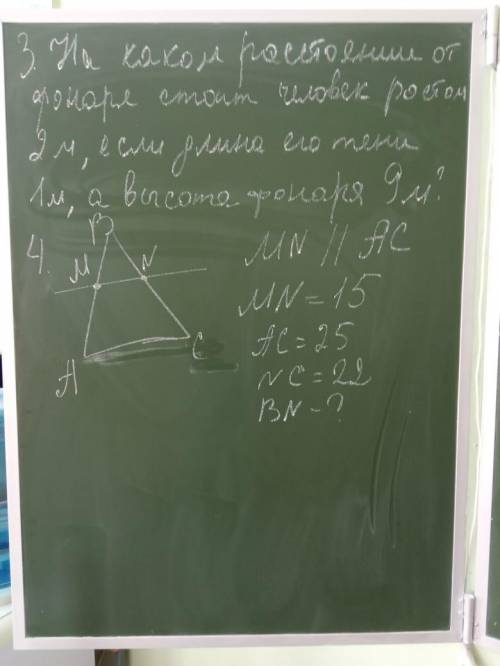 3. На каком расстоянии от
фонаря стоит человек ростом
2 м, если длина его тени
1 м, а высота фонаря 9 м?
4.
B
M N
A C
MN || AC
MN = 15
AC = 25
NC = 22
BN - ?